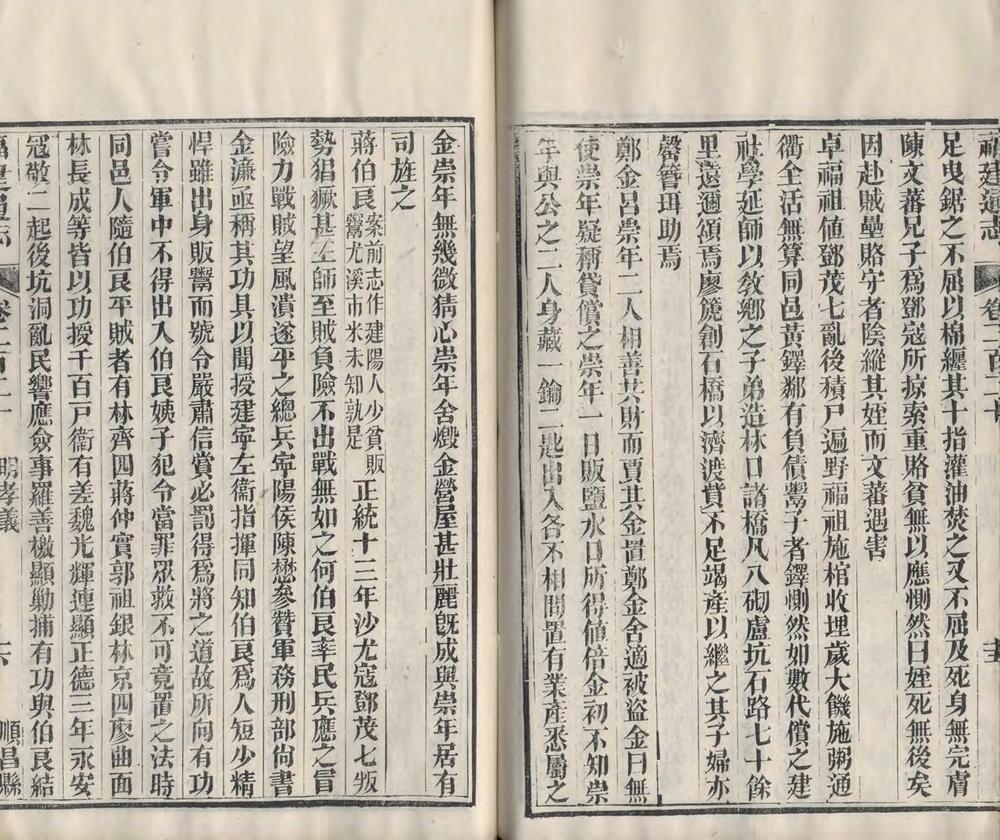 福建通志 卷二百二十
足曳鋸之不屈以棉纏其十指灌油焚之又不屈及死身無完膚
陳文蕃兄子爲鄧寇所掠索重賂貧無以應惻然曰姪死無後矣
因赴賊壘賂守者陰縱其姪而文蕃遇害
卓福祖値鄧茂七亂後積尸遍野福祖施棺收埋歲大饑施粥通
衢全活無算同邑黃鐸鄰有負債鬻子者鐸惻然如數代償之建
社學延師以敎鄉之子弟造林口諸橋凡八砌盧坑石路七十餘
里遠邇頌焉廖箎創石橋以濟渡貲不足竭產以繼之其子婦亦
罄簪珥助焉
鄭金呂崇年二人相善共財而賈其金置鄭金舍適被盜金曰無
使崇年疑稱貸償之崇年一日販鹽水口所得値倍金初不知崇
年與公之二人身藏一鑰二匙出入各不相問置有業產悉屬之
金崇年無幾微猜心崇年舍燬金營屋甚壯麗旣成與崇年居有
司旌之
蔣伯艮案前志作建陽人少貧販鬻尤溪市米未知孰是正統十三年沙尤寇鄧茂七叛
勢猖獗甚王師至賊負險不出戰無如之何伯艮率民兵應之冒
險力戰賊望風潰遂平之總兵寧陽侯陳懋參贊軍務刑部尙書
金濂亟稱其功具以聞授建寧左衞指揮同知伯艮爲人短少精
悍雖出身販鬻而號令嚴肅信賞必罰得爲將之道故所向有功
嘗令軍中不得出入伯艮姨子犯令當罪眾救不可竟置之法時
同邑人隨伯艮平賊者有林齊四蔣仲實郭祖銀林京四廖曲面
林長成等皆以功授千百戸衞有差魏光輝連顯正德三年永安
寇敬二起後坑洞亂民響應僉事羅善檄顯勦捕有功與伯艮結
福建通志 卷二百二十 明孝義 六 順昌縣